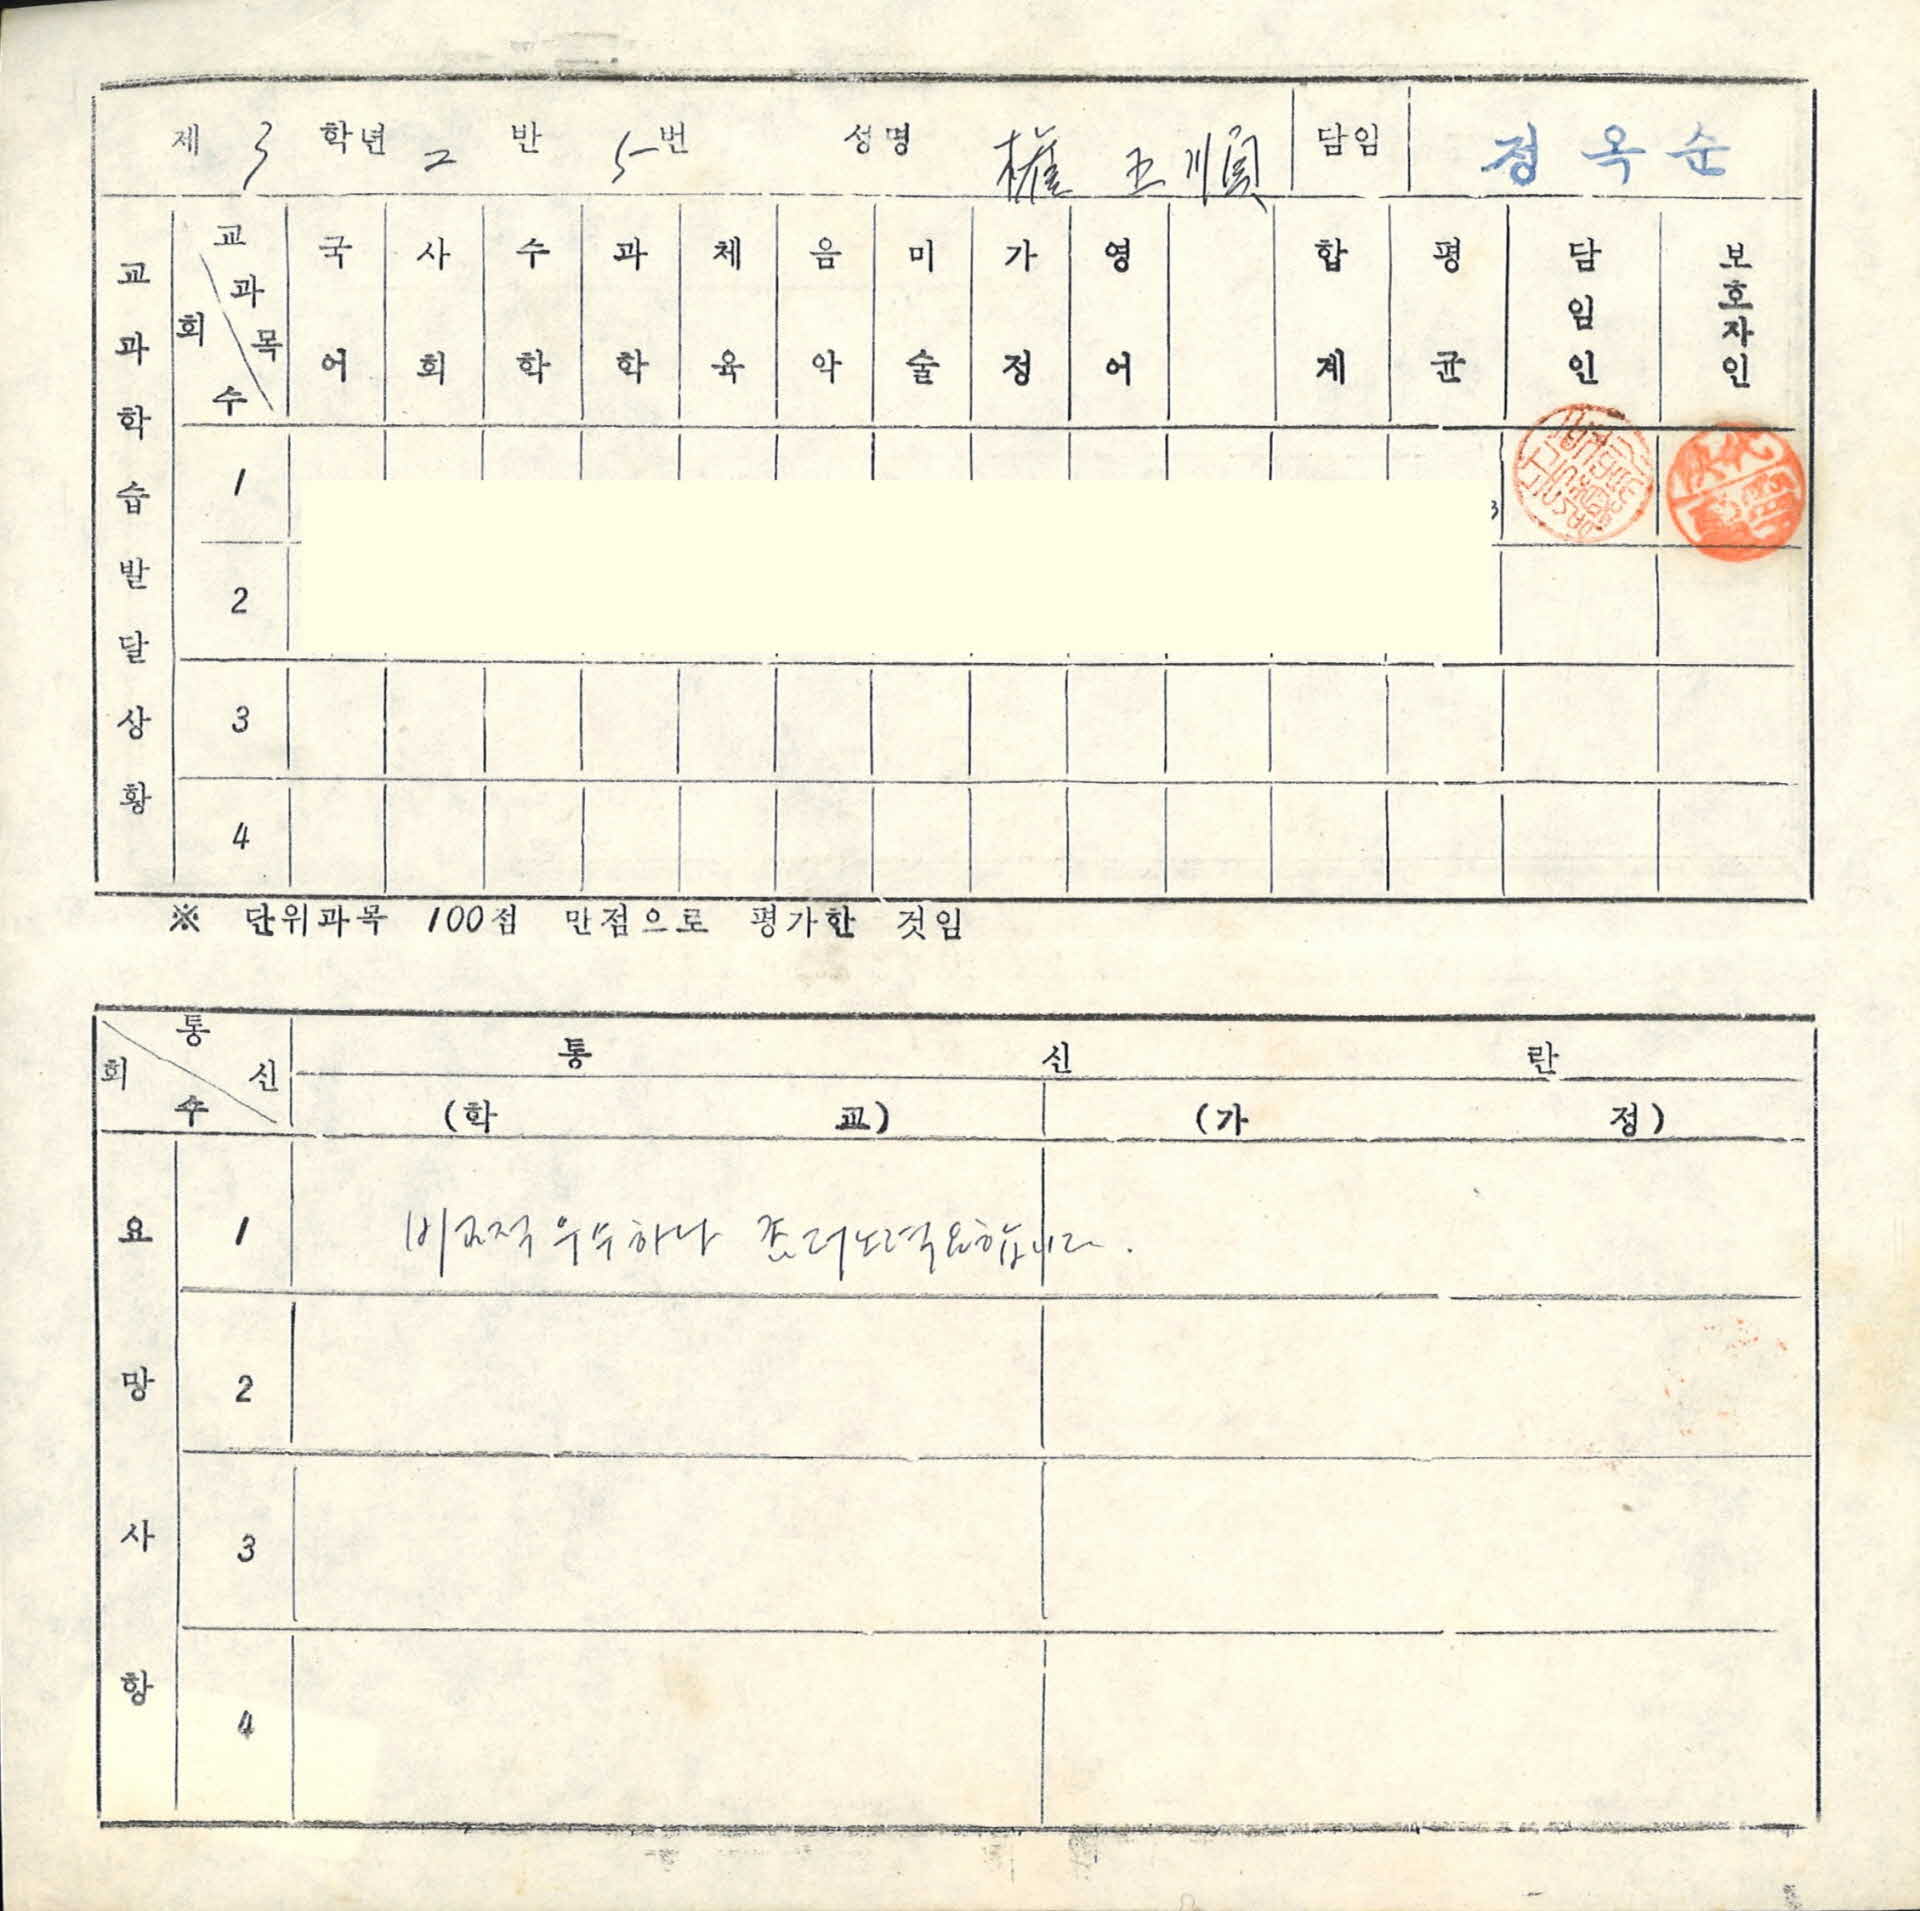 제 3 학년 2 반 5 번 성명 權五順 담임 정옥순
교과학습발달상황
교과목 회수 국어 사회 수학 과학 체육 음악 미술 가정 영어 합계 평균 담임인 보호자인
1
2
3
4
※ 단위과목 100점 만점으로 평가한 것임
통신 회수 통신란
(학교) (가정)
요망사항
1 비교적 우수하나 좀 더 노력 요합니다.
2
3
4